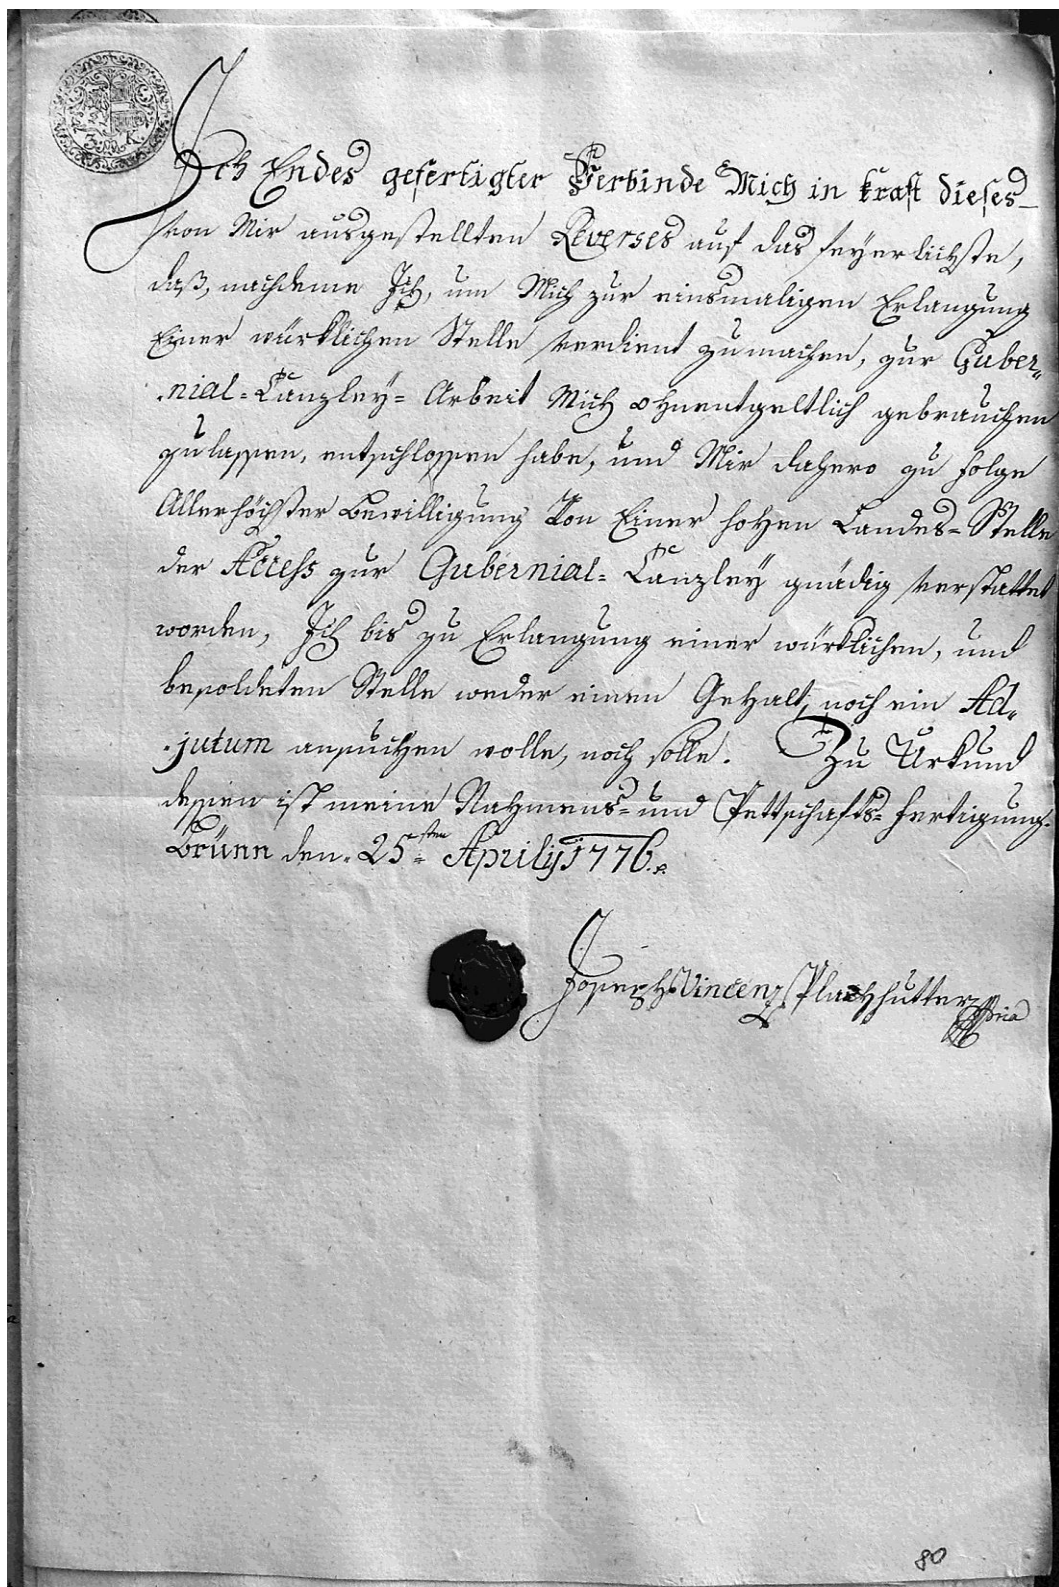 3 K.
Ich Endes gefertigter Verbinde Mich in kraft dieses
von Mir ausgestellten Reverses auf das feyerlichste,
daß, nachdeme Ich, um Mich zur einsmaligen Erlangung
Einer würklichen Stelle verdient zumachen, zur Guber„
„nial=Canzley=Arbeit Mich ohnentgeltlich gebrauchen
zulassen, entschlossen habe, und Mir dahero zu folge
Allerhöchster Bewilligung Von Einer hohen Landes=Stelle
der Access zur Gubernial=Canzley gnädig verstattet
worden, Ich bis zu Erlangung einer würklichen, und
besoldeten Stelle weder einen Gehalt, noch ein Ad„
„jutum ansuchen wolle, noch solle. Zu Urkund
dessen ist meine Nahmens= und Pettschafts=fertigung.
Brünn den 25sten Aprily 1776.
Joseph Vincenz Plachhutter mpria
80